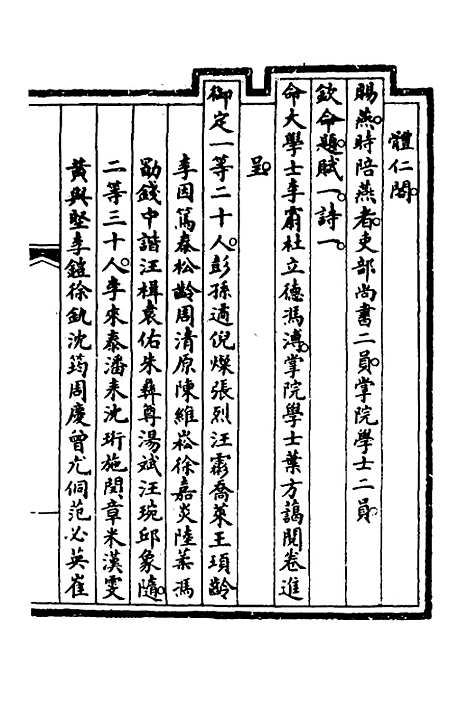 體仁閣。
賜燕。時陪燕者。吏部尚書二員。掌院學士二員。
欽命題。賦一。詩一。
命大學士李霨杜立德馮溥。掌院學士葉方藹閱卷進
呈。
御定一等二十人。彭孫遹倪燦張烈汪霦喬萊王頊齡
李因篤秦松齡周清原陳維崧徐嘉炎陸葇馮
勖錢中諧汪楫袁佑朱彝尊湯斌汪琬邱象隨。
二等三十人。李來泰潘耒沈珩施閏章米漢雯
黃與堅李鎧徐釚沈筠周慶曾尤侗范必英崔